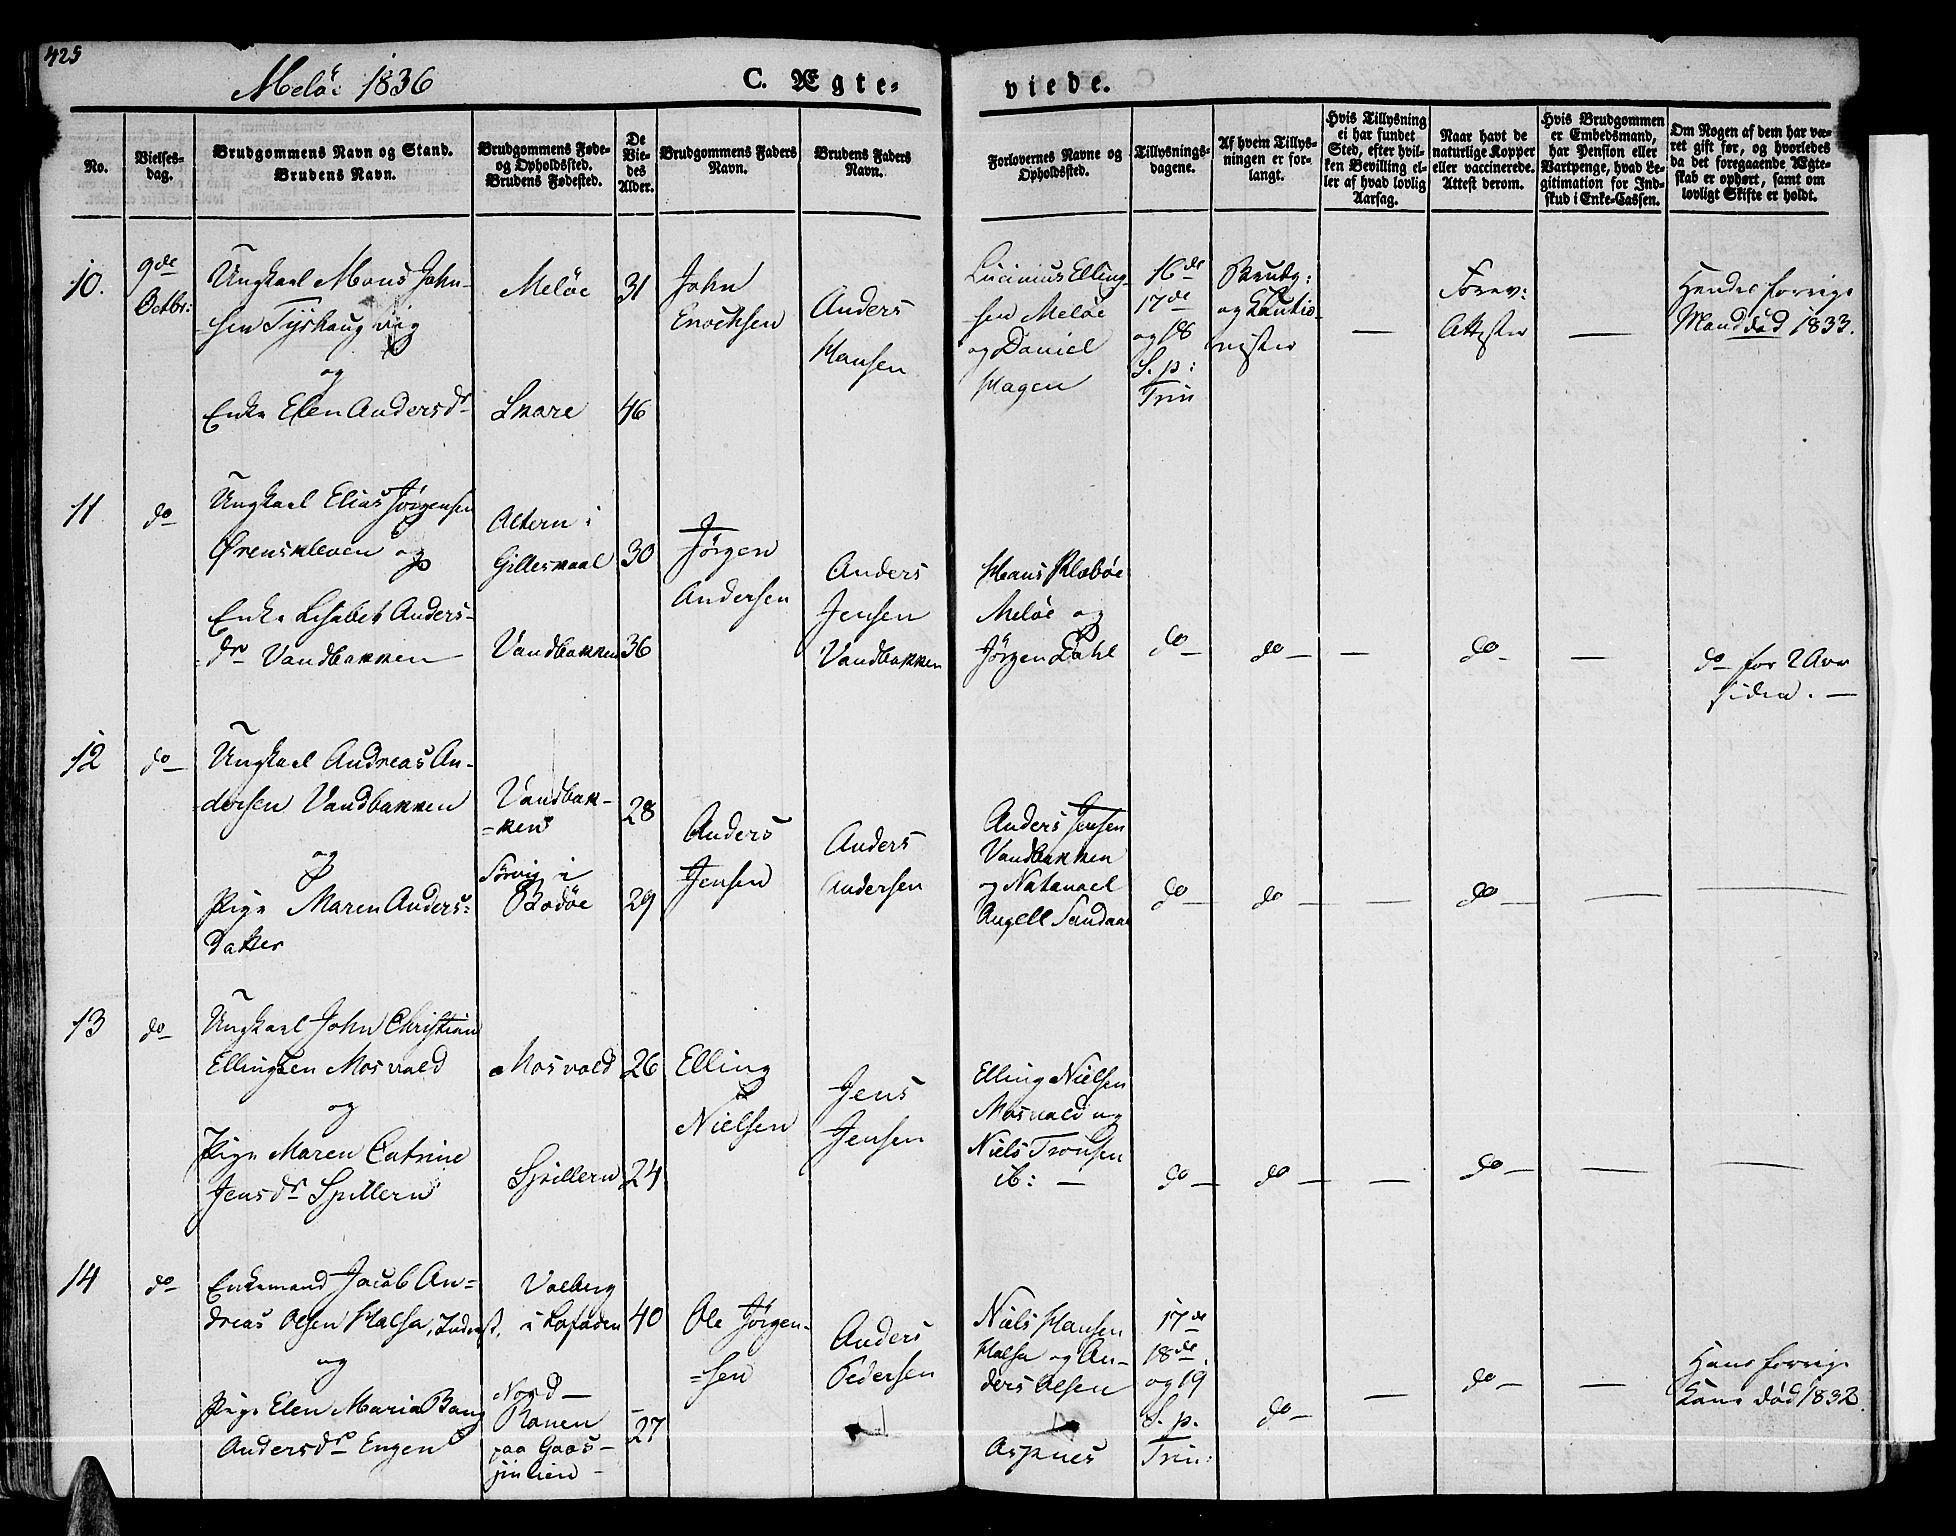 425
Meløe 1836
C. Ægte-
viede.
No.
Vielses-
dag.
Brudgommens Navn og Stand.
Brudens Navn.
Brudgommens Føde-
og Opholdssted.
Brudens Fødested.
De
Vie-
des
Alder.
Brudgommens Faders
Navn.
Brudens Faders
Navn.
Forlovernes Navne og
Opholdssted.
Tillysnings-
dagene.
Af hvem Tillys-
ningen er for-
langt.
Hvis Tillysning
ei har fundet
Sted, efter hvil-
ken Bevilling el-
ler af hvad lovlig
Aarsag.
Naar havt de
naturlige Kopper
eller vaccinerede.
Attest derom.
Hvis Brudgommen
er Embedsmand,
har Pension eller
Vartpenge, hvad Le-
gitimation for Ind-
skud i Enke-Cassen.
Om Nogen af dem har væ-
ret gift før, og hvorledes
da det foregaaende Ægte-
skab er ophørt, samt om
lovligt Skifte er holdt.
10.
9de
Octbr:
Ungkarl Mons John-
sen Tyshaugvig
og
Enke Elen Andersdr
Meløe
Snare
31
46
John
Enochsen
Anders
Hansen
Lucinius Elling-
sen Meløe
og Daniel
Hagen
16de
17de
og 18
S. p:
Trin
Brudg:
og Cautio-
nister
—
Forev:
Attester
—
Hendes forrige
Mand død 1833.
11
do
Ungkarl Elias Jørgensen
Ørenskleven og
Enke Lisabet Anders-
dr Vandbakken
Altern i
Gilleskaal
Vandbakken
30
36
Jørgen
Andersen
Anders
Jensen
Vandbakken
Hans Klæbøe
Meløe og
Jørgen Dahl
do —
do —
—
do —
—
do for 2 Aar
siden. —
12
do —
Ungkarl Andreas An-
dersen Vandbakken
og
Pige Maren Anders-
datter
Vandbak-
-ken
Sørvig i
Bodøe
28
29
Anders
Jensen
Anders
Andersen
Anders Jensen
Vandbakken
og Natanael
Angell Sandaa
do —
do —
—
do —
—
—
13
do
Ungkarl John Christian
Ellingsen Mosvold
og
Pige Maren Catrine
Jensdr Spillern
Mosvold
Spillern
26
24
Elling
Nielsen
Jens
Jensen
Elling Nielsen
Mosvold og
Niels Tronsen
ib: —
do —
do —
—
do —
—
—
14
do —
Enkemand Jacob An-
dreas Olsen Halsa, Inderst,
og
Pige Elen Maria Bang
Andersdr Engen
Valberg
i Lofoden
Nord-
Ranen
paa
40
27
Ole Jørgen-
-sen
Anders
Pedersen
Niels Hansen
Halsa og An-
ders Olsen
Aspnes
17de
18de.
og 19
S. p.
Trin:
do —
—
do —
—
Hans forrige
Kone død 1832.